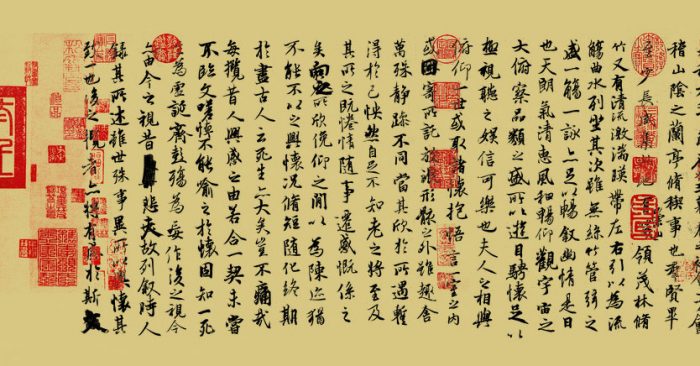 稽山陰之蘭亭脩稧事也羣賢畢
至少長咸集此地領茂林脩
竹又有清流激湍暎帶左右引以為流
觴曲水列坐其次雖無絲竹管弦之
盛一觴一詠亦足以暢敘幽情是日
也天朗氣清惠風和暢仰觀宇宙之
大俯察品類之盛所以遊目騁懷足以
極視聽之娛信可樂也夫人之相與
俯仰一世或取諸懷抱悟言一室之內
或因寄所託放浪形骸之外雖趣舍
萬殊靜躁不同當其欣於所遇暫
得於己怏然自足不知老之將至及
其所之既惓情隨事遷感慨係之
矣向之所欣俛仰之間以為陳迹猶
不能不以之興懷況脩短隨化終期
於盡古人云死生亦大矣豈不痛哉
每攬昔人興感之由若合一契未嘗
不臨文嗟悼不能喻之於懷固知一死
生為虛誕齊彭殤為妄作後之視今
亦由今之視昔悲夫故列敘時人
錄其所述雖世殊事異所以興懷其
致一也後之攬者亦將有感於斯文